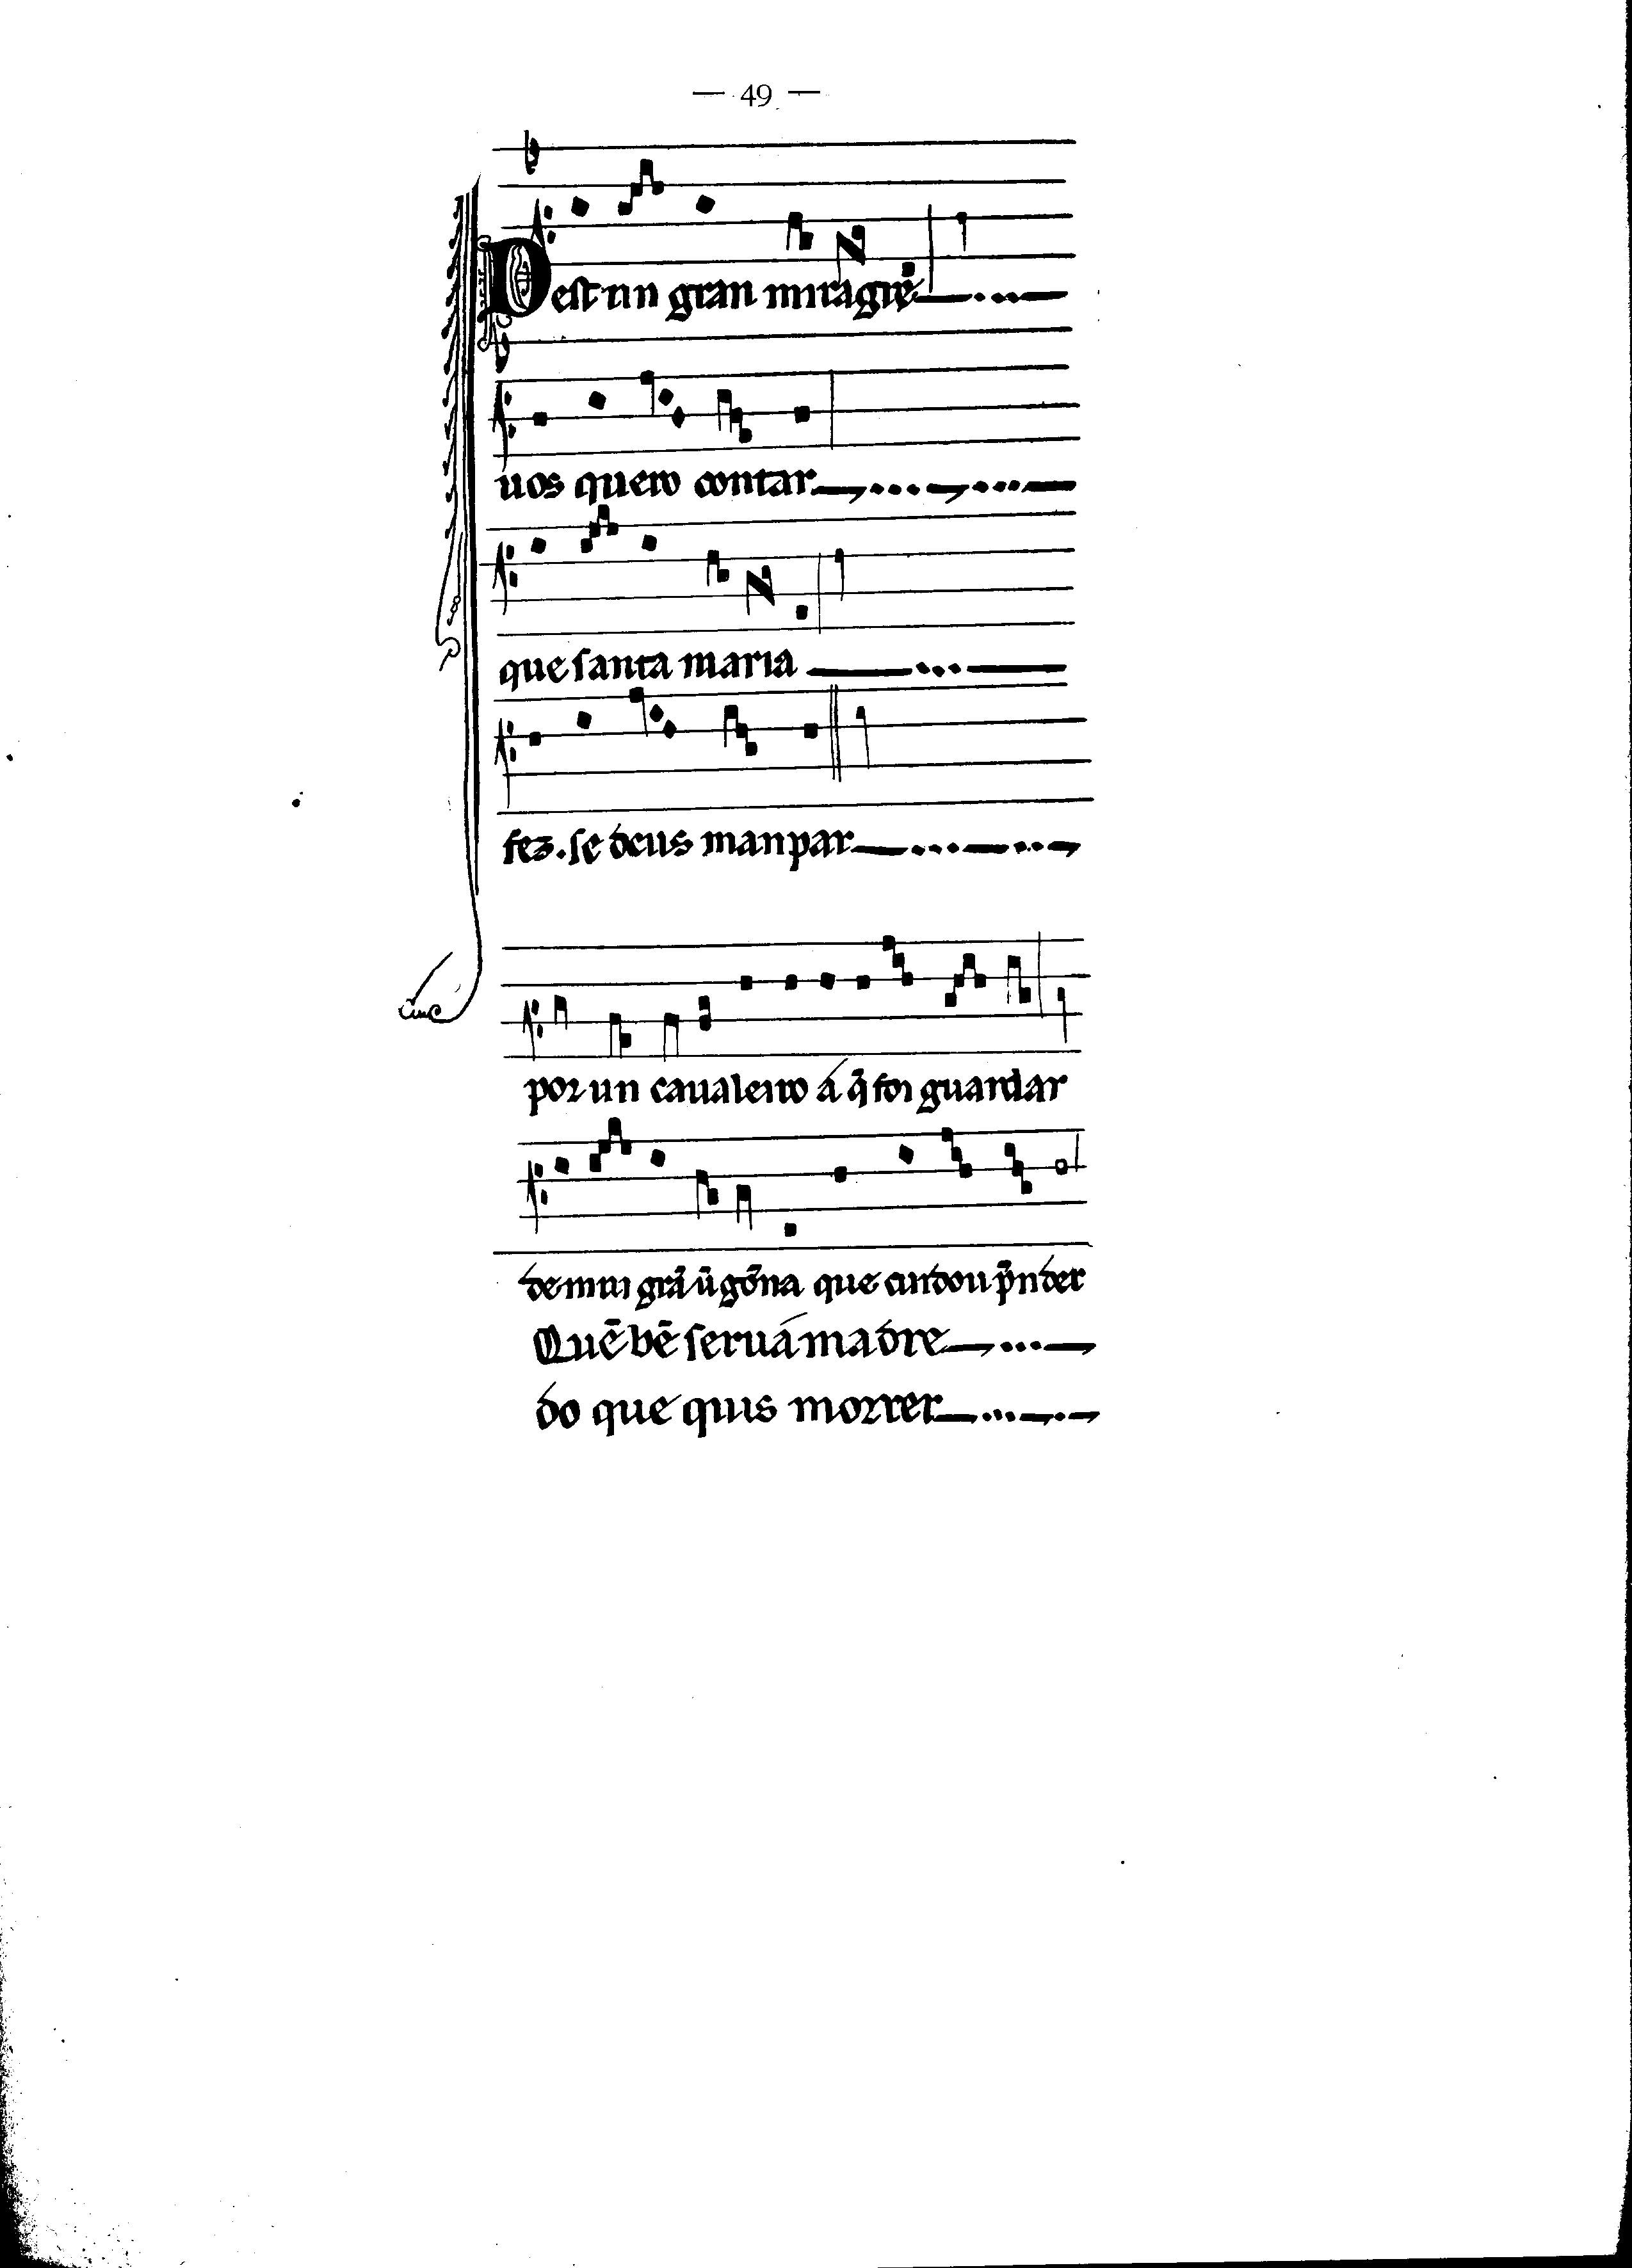 — 49 —
Dest un gran miragre
uos quero contar
que santa maria
fez. se deus manpar
por un caualeiro a q̄ foi guardar
de mui grã ũgõna que cuidou p̃nder
Quẽ bẽ serua madre
do que quis morrer